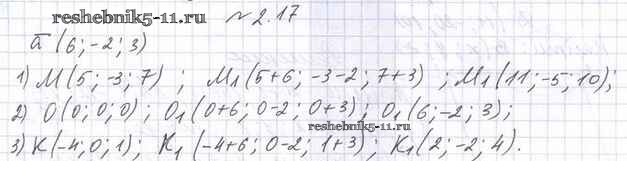 reshebnik5-11.ru
№ 2.17
ā (6; -2; 3)
1) M(5; -3; 7) ; M₁(5+6; -3-2; 7+3) ; M₁(11; -5; 10);
2) O(0; 0; 0); O₁(0+6; 0-2; 0+3); O₁(6; -2; 3);
reshebnik5-11.ru
3) K(-4; 0; 1); K₁(-4+6; 0-2; 1+3); K₁(2; -2; 4).